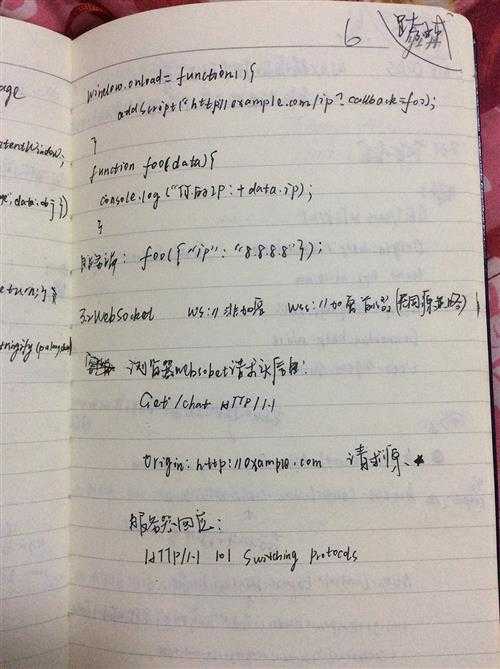 age
6
window.onload = function(){
addScript("http://example.com/ip?callback=foo);
}
function foo(data){
console.log("你的IP:+data.ip);
}
服务端: foo({"ip": "8.8.8.8"});
3>WebSocket ws://非加密 wss://加密 (无同源策略)
浏览器websocket请求头信息:
Get /chat HTTP/1.1
Origin: http://example.com 请求源、
服务器回应:
HTTP/1.1 101 Switching protocols